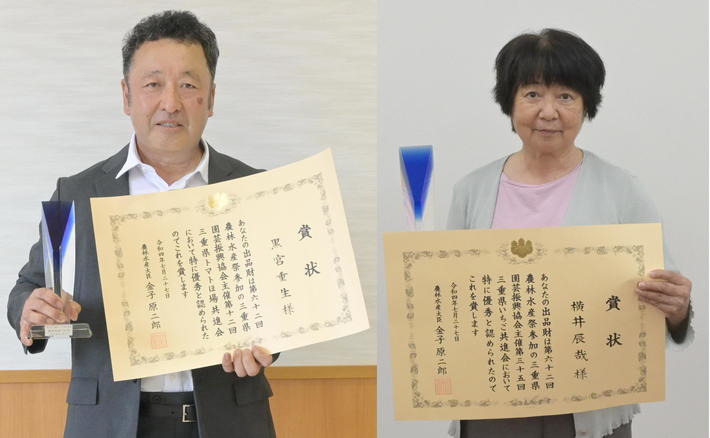 賞状
黒宮重生様
あなたの出品財は第六十二回
農林水産祭参加の三重県
園芸振興協会主催第十二回
三重県トマトほ場共進会
において特に優秀と認められた
のでこれを賞します
令和四年七月二十七日
農林水産大臣 金子原二郎
賞状
横井辰哉様
あなたの出品財は第六十二回
農林水産祭参加の三重県
園芸振興協会主催第三十五回
三重県いちご共進会において
特に優秀と認められたので
これを賞します
令和四年七月二十七日
農林水産大臣 金子原二郎